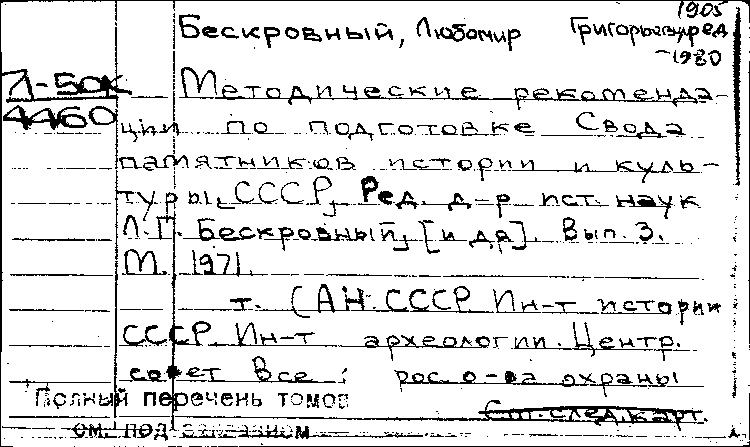 1905
Бескровный, Любомир Григорьевич, ред.
-1980
Л-50К
Методические рекоменда-
4460
ции по подготовке Свода
памятников истории и куль-
туры СССР, Ред. д-р ист. наук
Л.Г. Бескровный, [и др]. Вып. 3.
М. 1971.
т. (АН СССР Ин-т истории
СССР Ин-т археологии. Центр.
совет Все рос. о-ва охраны
Полный перечень томов
См. след. карт.
см. под